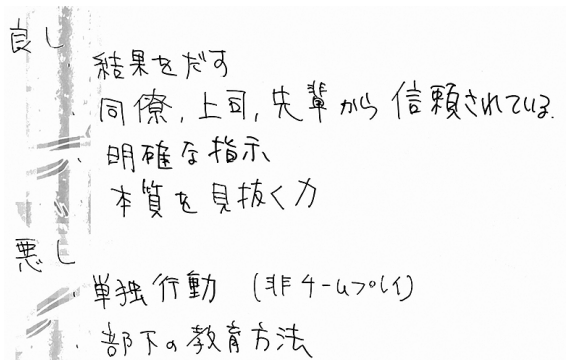 良し
・結果をだす
・同僚,上司,先輩から信頼されている.
・明確な指示
・本質を見抜く力
悪し
・単独行動 (非チームプレイ)
・部下の教育方法